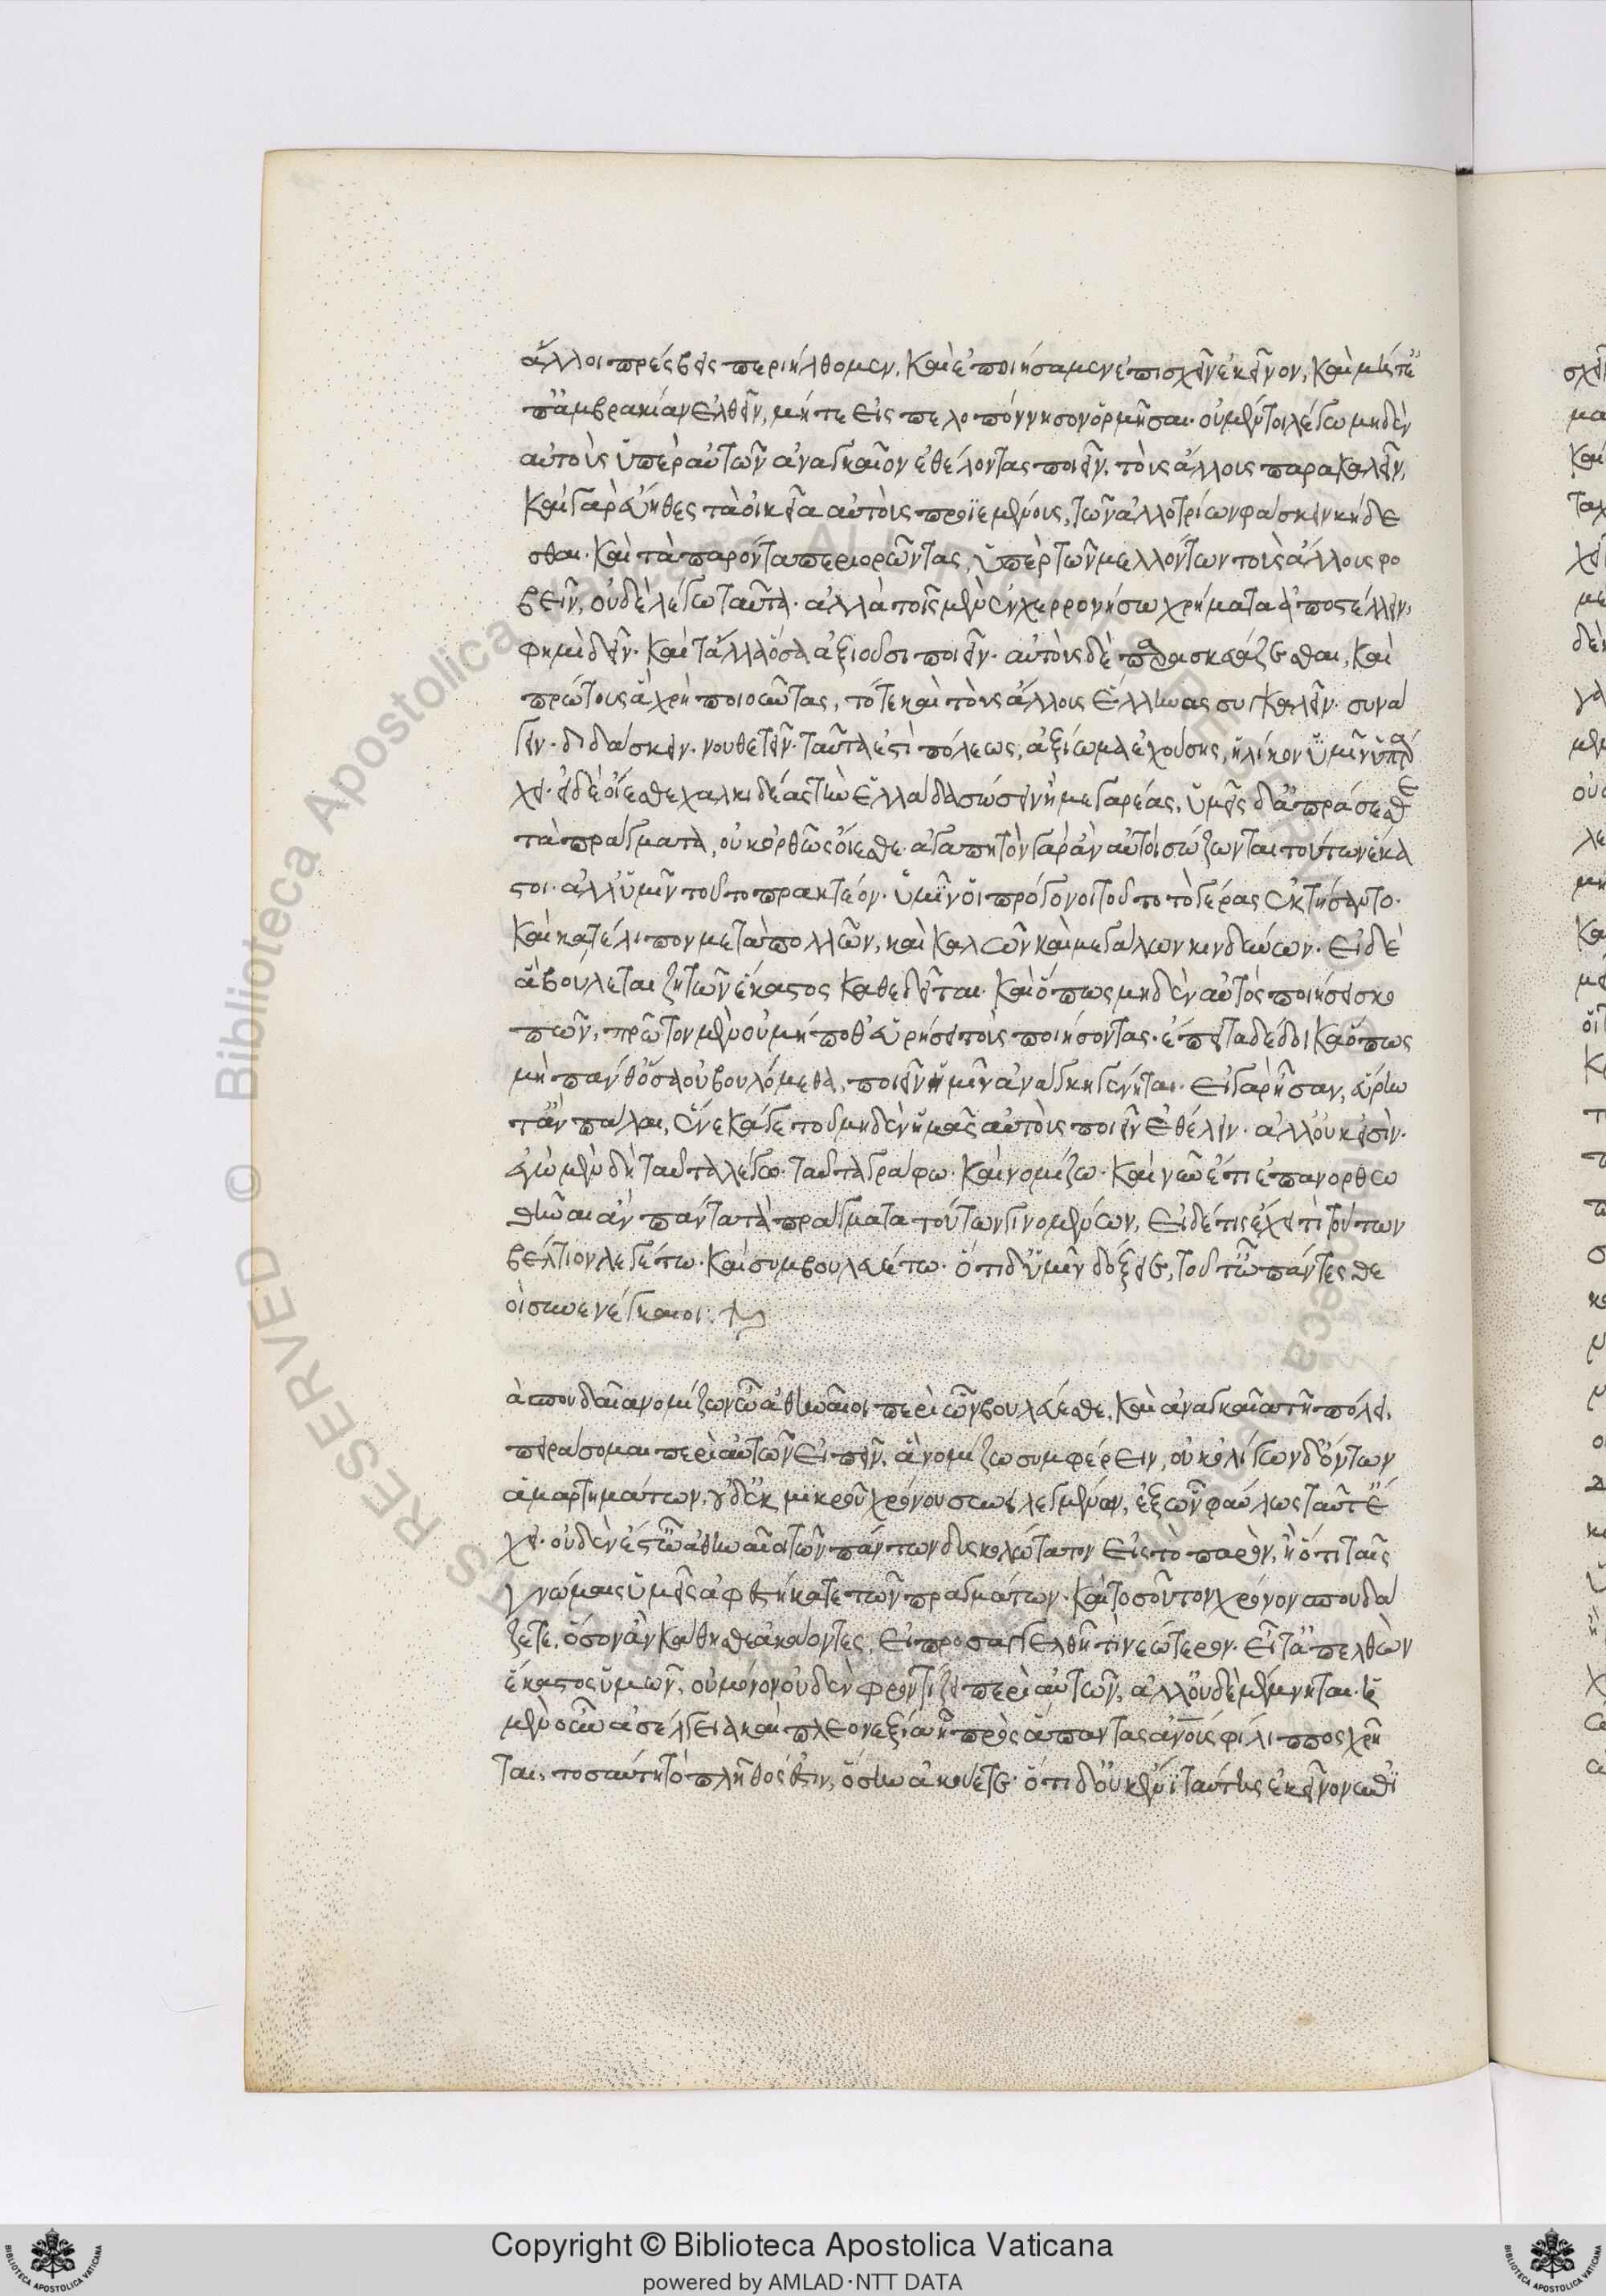 ἄλλοι πρέσβεις περιήλθομεν, καὶ ἐποιήσαμεν ἐπισχεῖν ἐκεῖνον, καὶ μήτ' ἐ
π' ἀμβρακίαν ἐλθεῖν, μήτε εἰς πελοπόννησον ὁρμῆσαι· οὐ μέντοι λέγω μηδὲν
αὐτοὺς ὑπὲρ αὑτῶν ἀναγκαῖον ἐθέλοντας ποιεῖν, τοὺς ἄλλους παρακαλεῖν,
καὶ γὰρ εὔηθες τὰ οἰκεῖα αὐτοὺς προϊεμένους, τῶν ἀλλοτρίων φάσκειν κήδε
σθαι· καὶ τὰ παρόντα περιορῶντας, ὑπὲρ τῶν μελλόντων τοὺς ἄλλους φο
βεῖν, οὐδὲ λέγω ταῦτα· ἀλλὰ τοῖς μὲν ἐν χερρονήσω χρήματα ἀποστέλλειν,
φημὶ δεῖν· καὶ τἄλλα ὅσα ἀξιοῦσι ποιεῖν· αὐτοὺς δὲ παρασκευάζεσθαι, καὶ
πρώτους ἃ χρὴ ποιοῦντας, τότε καὶ τοὺς ἄλλους ἕλληνας συγκαλεῖν· συνά
γειν· διδάσκειν· νουθετεῖν· ταῦτά ἐστι πόλεως, ἀξίωμα ἐχούσης, ἡλίκον ὑμῖν ὑπάρ
χει· εἰ δὲ οἴεσθε χαλκιδέας τὴν ἑλλάδα σώσειν ἢ μεγαρέας, ὑμεῖς δ' ἀποδράσεσθε
τὰ πράγματα, οὐκ ὀρθῶς οἴεσθε· ἀγαπητὸν γὰρ ἂν αὐτοὶ σώζωνται τούτων ἕκα
στοι· ἀλλ' ὑμῖν τοῦτο πρακτέον· ὑμῖν οἱ πρόγονοι τοῦτο τὸ γέρας ἐκτήσαντο·
καὶ κατέλιπον μετὰ πολλῶν, καὶ καλῶν καὶ μεγάλων κινδύνων· εἰ δὲ
ἃ βούλεται ζητῶν ἕκαστος καθεδεῖται· καὶ ὅπως μηδὲν αὐτὸς ποιήσει σκο
πῶν, πρῶτον μὲν οὐ μή ποθ' εὑρήσει τοὺς ποιήσοντας· ἔπειτα δέδοικα ὅπως
μὴ πάνθ' ὅσα οὐ βουλόμεθα, ποιεῖν ἡμῖν ἀνάγκη γένηται· εἰ γὰρ ἦσαν, εὕρην
τ' ἂν πάλαι, ἕνεκά γε τοῦ μηδὲν ἡμᾶς αὐτοὺς ποιεῖν ἐθέλειν· ἀλλ' οὐκ εἰσὶν·
ἐγὼ μὲν δὴ ταῦτα λέγω· ταῦτα γράφω· καὶ νομίζω· καὶ νῦν ἔτι ἐπανορθω
θῆναι ἂν πάντα τὰ πράγματα τούτων γινομένων, εἰ δέ τις ἔχει τι τούτων
βέλτιον λεγέτω· καὶ συμβουλευέτω· ὅ τι δ' ὑμῖν δόξει, τοῦτ' ὦ πάντες θε
οὶ συνενέγκαι :
ἃ σπουδαῖα νομίζων ὦ ἀθηναῖοι περὶ ὧν βουλεύεσθε, καὶ ἀναγκαῖα τῆ πόλει,
πειράσομαι περὶ αὐτῶν εἰπεῖν, ἃ νομίζω συμφέρειν, οὐκ ὀλίγων δ' ὄντων
ἁμαρτημάτων, οὐδ' ἐκ μικροῦ χρόνου συνειλεγμένων, ἐξ ὧν φαύλως ταῦτ' ἔ
χει· οὐδέν ἐστ' ὦ ἀθηναῖοι τῶν πάντων δυσκολώτατον εἰς τὸ παρὸν, ἢ ὅτι ταῖς
γνώμαις ὑμεῖς ἀφεστήκατε τῶν πραγμάτων· καὶ τοσοῦτον χρόνον σπουδά
ζετε, ὅσον ἂν κάθησθε ἀκούοντες, εἰ προσαγγελθῆ τι νεώτερον· εἶτ' ἀπελθὼν
ἕκαστος ὑμῶν, οὐ μόνον οὐδὲν φροντίζει περὶ αὐτῶν, ἀλλ' οὐδὲ μέμνηται· ἡ
μὲν οὖν ἀσέλγεια καὶ πλεονεξία ἧ πρὸς ἅπαντας ἀνους φίλιππος χρῆ
ται, τοσαύτη τὸ πλῆθός ἐστιν, ὅσην ἀκούετε· ὅτι δ' οὐκ ἔνι ταύτης ἐκεῖνον ἐπι